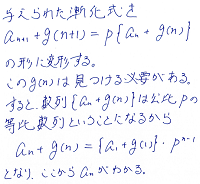 与えられた漸化式を
a_{n+1}+g(n+1)=p{a_n+g(n)}
の形に変形する。
このg(n)は見つける必要がある。
すると、数列{a_n+g(n)}は公比pの
等比数列ということになるから
a_n+g(n)={a_1+g(1)}・p^{n-1}
となり、ここからa_nがわかる。